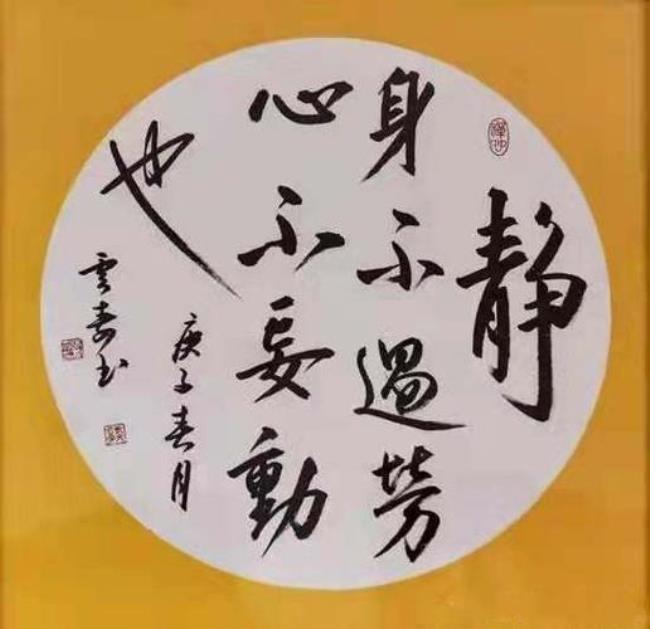 靜
身不過勞
心不妄動
也
庚子春月
雲壽书